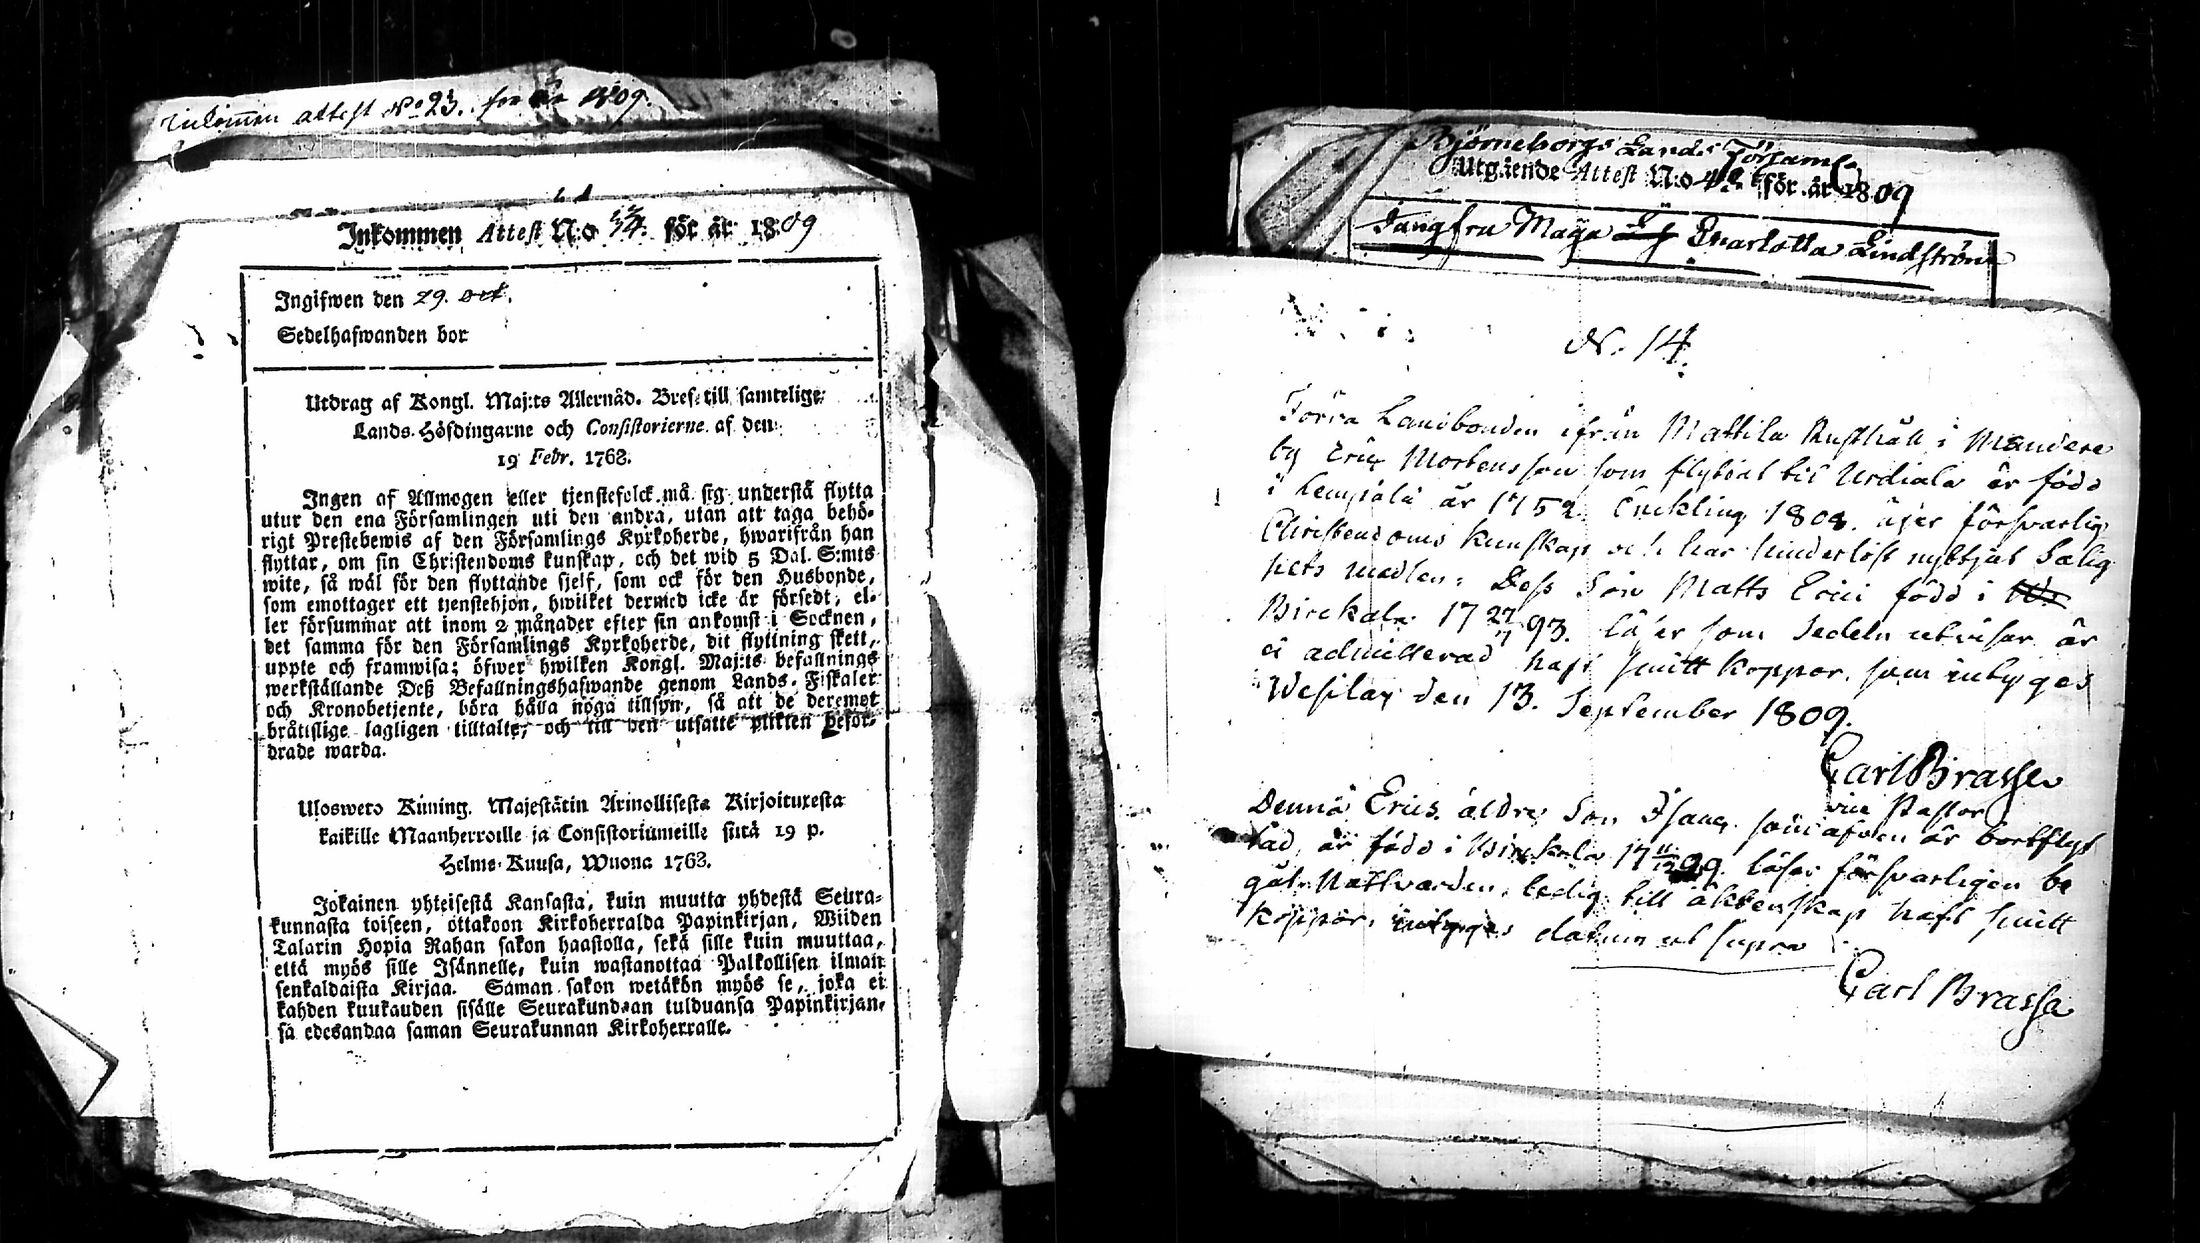 Inkommen attest No 23. för år 1809.
Inkommen Attest N:o 34. för år 1809
Ingifwen den 29. oct.
Sedelhafwanden bor
Utdrag af Kongl. Maj:ts Allernåd. Bref till samtelige
Lands-Höfdingarne och Consistorierne af den
19 Febr. 1763.
Ingen af Allmogen eller tjenstefolck må sig understå flytta
utur den ena Församlingen uti den andra, utan att taga behö-
rigt Prestebewis af den Församlings Kyrkoherde, hwarifrån han
flyttar, om sin Christendoms kunskap, och det wid 5 Dal. S:mts
wite, så wäl för den flyttande sjelf, som ock för den Husbonde,
som emottager ett tjenstehjon, hwilket dermed icke är försedt, el-
ler försummar att inom 2 månader efter sin ankomst i Socknen,
det samma för den Församlings Kyrkoherde, dit flyttning skett,
uppte och framwisa; öfwer hwilken Kongl. Maj:ts befallnings
werkställande Deß Befallningshafwande genom Lands-Fiskaler
och Kronobetjente, böra hålla noga tillsyn, så att de deremot
bråttslige lagligen tilltalte, och till den utsatte plikten befor-
drade warda.
Uloswero Kuning. Majestätin Armollisesta Kirjoituxesta
kaikille Maanherroille ja Consistoriumeille siitä 19 p.
Helme-Kuusa, Wuona 1763.
Jokainen yhteisestä Kansasta, kuin muutta yhdestä Seura-
kunnasta toiseen, ottakoon Kirkoherralda Papinkirjan, Wiiden
Talarin Hopia Rahan sakon haastolla, sekä sille kuin muuttaa,
että myös sille Isännelle, kuin wastanottaa Palkollisen ilman
senkaldaista Kirjaa. Saman sakon wetäkön myös se, joka ei
kahden kuukauden sisälle Seurakundaan tulduansa Papinkirjan-
sa edesandaa saman Seurakunnan Kirkoherralle.
Björneborgs Lands Församl
Utgående Attest N:o för år 1809
Jungfru Maja Charlotta Lindström
N. 14.
Förra Landbonden ifrån Mattila Rusthåll i
by Eric Mortensson som flyttat till Urdiala är född
i Lempälä år 1752. Enckling 1808. äger försvarlig
Christendoms kunskap och har hinderlöst nyttjat Salig
hets medlen. Dess Son Matts Erici född i
Birckala 17 27/7 93. läser som Sedeln utvisar är
ei admitterad haft smitt koppor. som intygas
Wesilax den 13. September 1809.
Carl Brasse
vice Pastor
Denna Erics äldre Son Isaac som äfven är bortflyt
tad, är född i Birckala läser försvarligen be
gåt Nattvarden, ledig till äktenskap haft smitt
koppor, intygas datum ut supra
Carl Brasse